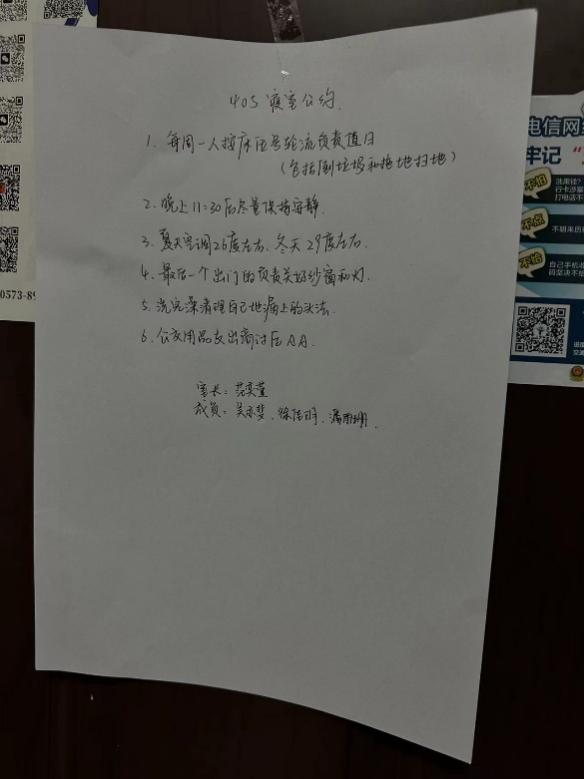 405 寝室公约
1. 每周一人按床位号轮流负责值日
(包括倒垃圾和拖地扫地)
2. 晚上11:30后尽量保持安静.
3. 夏天空调26度左右, 冬天29度左右.
4. 最后一个出门的负责关好纱窗和灯.
5. 洗完澡清理自己地漏上的头发.
6. 公交用品支出商讨后AA.
室长:
成员: 吴亦梦、徐佳玥、潘雨珊.
0573-89
电信网络
牢记 "
不怕
不贪